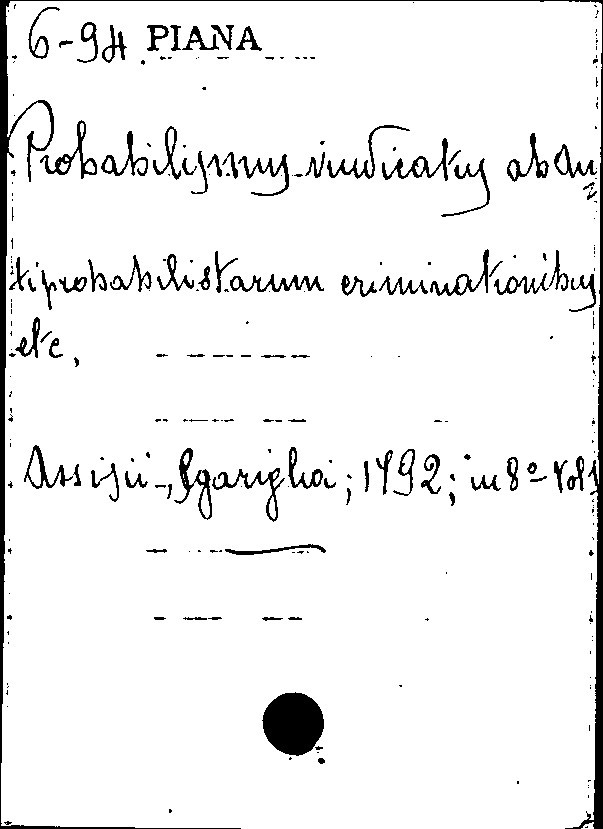 6-94 PIANA
Probabilismus vindicatus ab An
tiprobabilistarum criminationibus
etc.
Assisii -, Sgariglia; 1792; in 8º- Vol 1